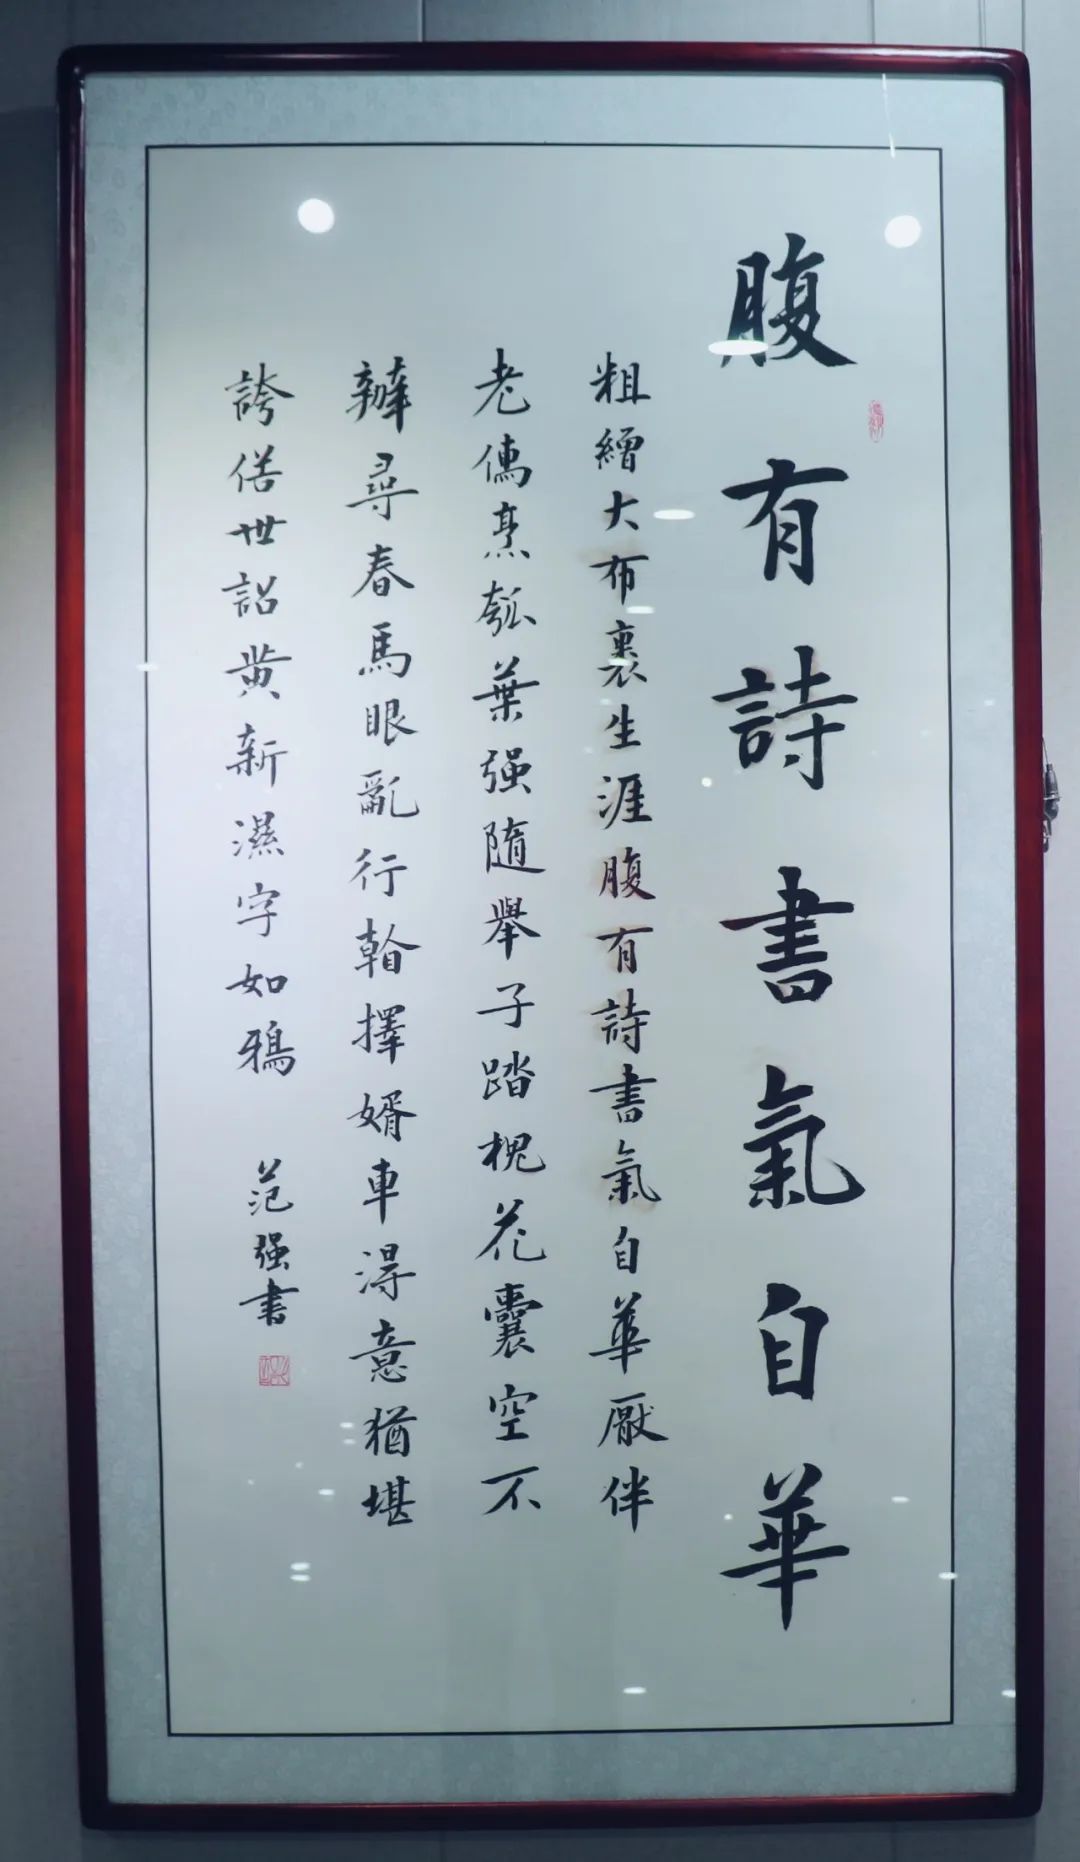 腹有詩書氣自華
粗繒大布裹生涯腹有詩書氣自華厭伴
老儒烹瓠葉强隨舉子踏槐花囊空不
辦尋春馬眼亂行看擇婿車得意猶堪
誇俗世詔黄新濕字如鴉 范强書